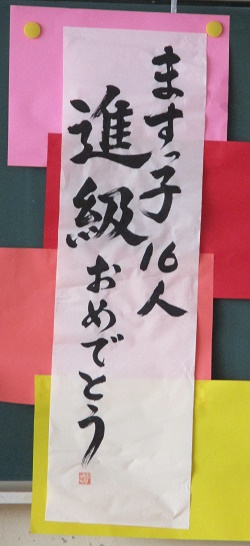 ますっ子16人
進級おめでとう